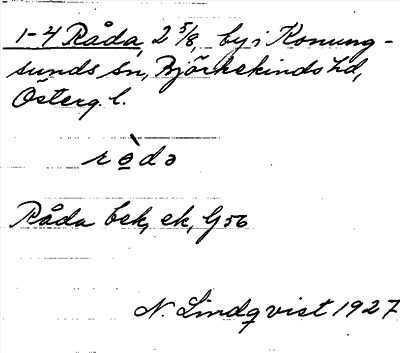 1-4 Råda, 2 5/8, by i Konung-
sunds sn, Björkekinds hd,
Österg. l.
rò̲də
Råda bek, ek, G 56
N. Lindqvist 1927